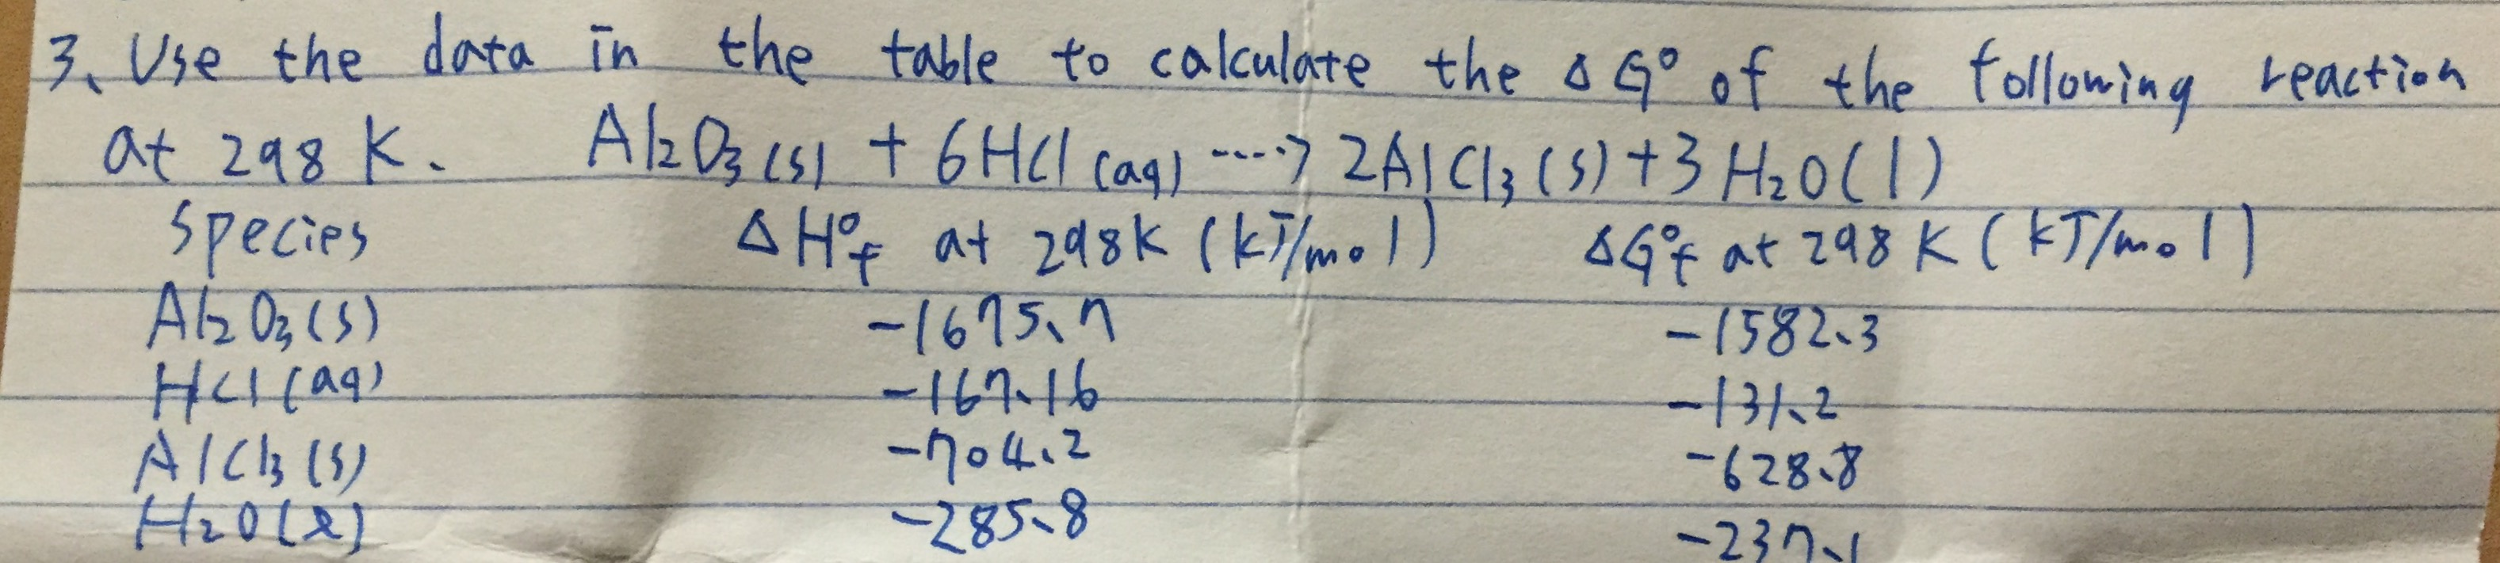 3. Use the data in the table to calculate the ΔG° of the following reaction
at 298 K. Al₂O₃(s) + 6HCl(aq) ----> 2AlCl₃(s) + 3H₂O(l)
Species ΔH°f at 298K (kJ/mol) ΔG°f at 298 K (kJ/mol)
Al₂O₃(s) -1675.7 -1582.3
HCl(aq) -167.16 -131.2
AlCl₃(s) -704.2 -628.8
H₂O(l) -285.8 -237.1